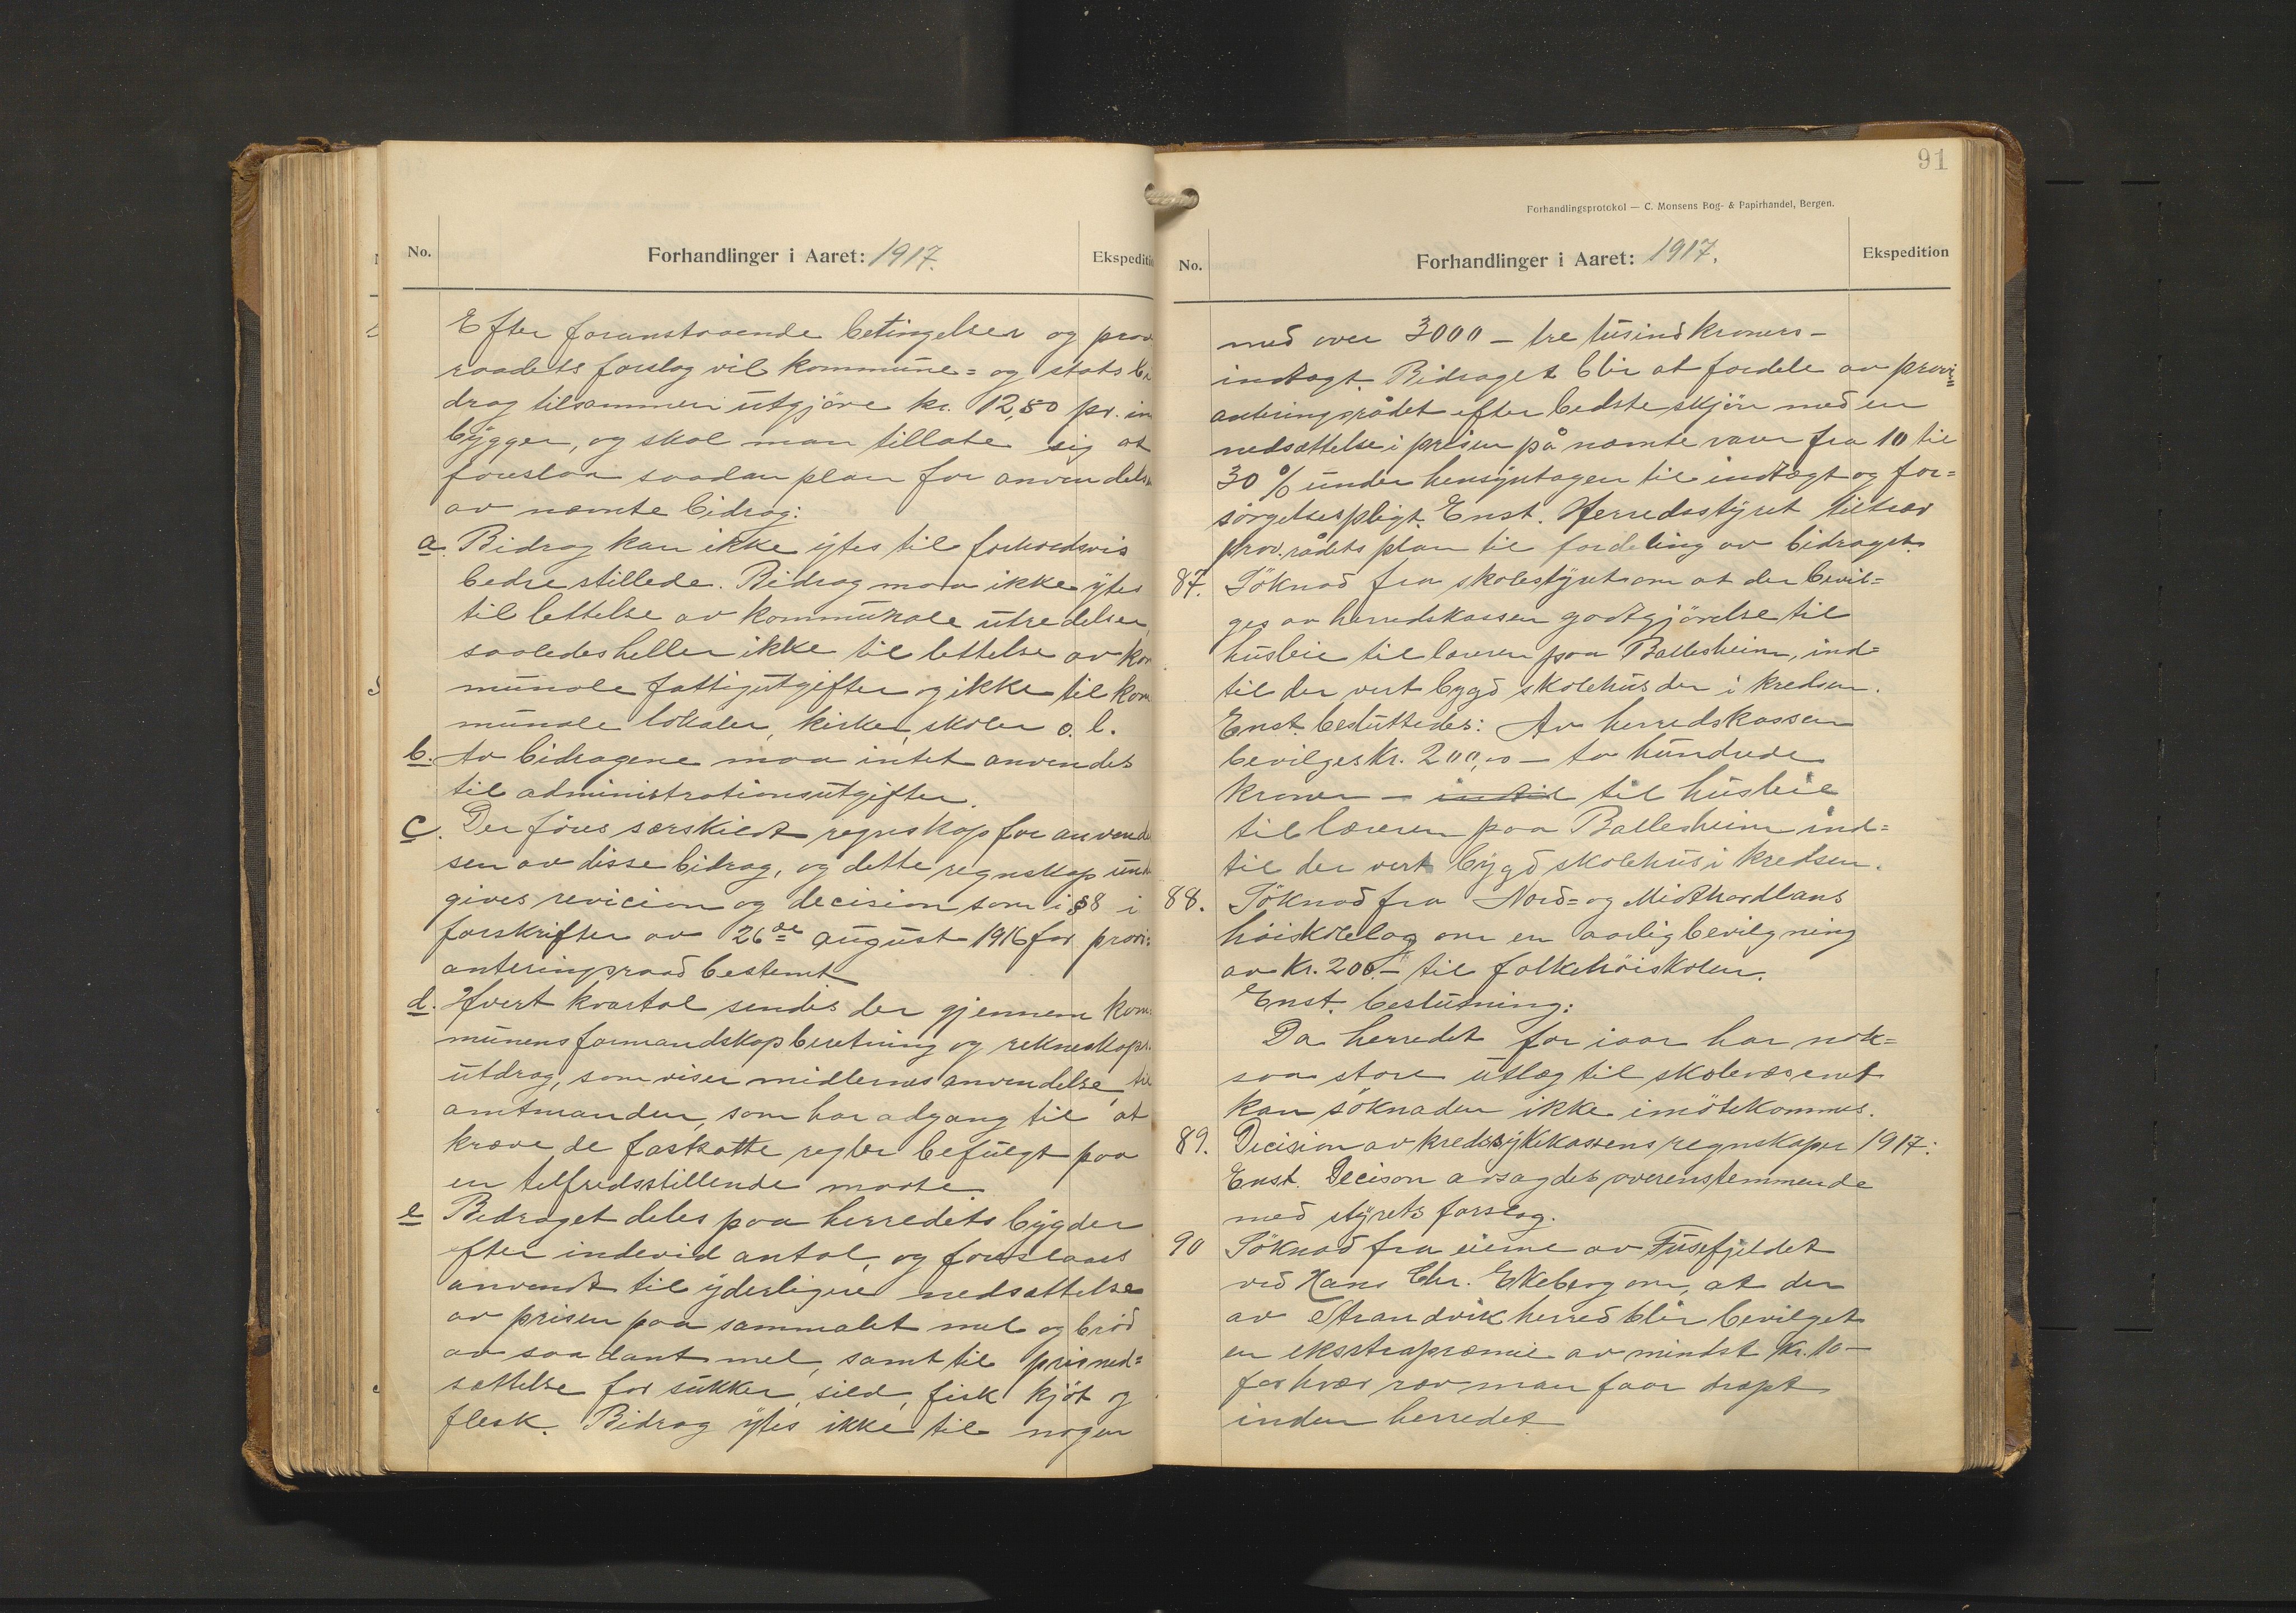 No.
Forhandlinger i Aaret: 1917.
Ekspediti
Efter foranstaaende betingelser og prov.
raadets forslag vil kommune= og stats bi
drag tilsammen utgjöre kr. 12,50 pr. in
bygger, og skal man tillate sig at
foreslaa saadan plan for anvendelse
av nævnte bidrag:
a. Bidrag kan ikke ytes til forholdsvis
bedrestillede. Bidrag maa ikke ytes
til lettelse av kommunale utredelser,
saaledes heller ikke til lettelse av kom
munale fattigutgifter og ikke til kom
munale lokaler, kirker, skoler o. l.
b. Av bidragene maa intet anvendes
til administrationsutgifter.
c. Der föres særskildt regnskap for anvendel
sen av disse bidrag, og dette regnskap und
gives revicion og decision som i § 8 i
forskrifter av 26de august 1916 for provi=
anteringsraad bestemt.
d. Hvert kvartal sendes der gjennem kom=
munens formandskap beretning og rekneskaps=
utdrag, som viser midlernes anvendelse, til
amtmanden, som har adgang til at
kræve de fastsatte regler befulgt paa
en tilfredsstillende maate.
e Bidraget deles paa herredets bygder
efter individ antal, og foreslaaes
anvendt til yderligere nedsættelse
av prisen paa sammalet mel og bröd
av saadant mel, samt til prisned=
sættelse for sukker, sild, fisk kjöt og
flesk. Bidrag ytes ikke til nogen
91
Forhandlingsprotokol — C. Monsens Bog- & Papirhandel, Bergen.
No.
Forhandlinger i Aaret: 1917.
Ekspedition
med over 3000 – tre tusind kroners –
indtægt. Bidraget blir at fordele av provi=
anteringsrådet efter bedste skjön med en
nedsættelse i prisen på nævnte varer fra 10 til
30 % under hensyntagen til indtægt og for=
sörgelsespligt. Enst. Herredsstyret tiltræd
prov. rådets plan til fordeling av bidraget.
87. Söknad fra skolestyret om at der bevil=
ges av herredskassen godtgjörelse til
husleie til læreren paa Ballesheim, ind=
til der vert bygd skolehus der i kredsen.
Enst. besluttedes: Av herredskassen
bevilges kr. 200,00 – to hundrede
kroner – indtil til husleie
til læreren paa Ballesheim ind=
til der vert bygd skolehus i kredsen.
88. Söknad fra Nord= og Midthordlans
höiskolelag om en aarlig bevilgning
av Kr. 200.– til folkehöiskolen.
Enst. beslutning:
Da herredet for iaar har nok=
saa store utlæg til skolevæsenet
kan söknaden ikke imötekommes.
89. Dicision av kredssykekassens regnskaper 1917:
Enst. Decison avsagdes overenstemmende
med styrets forslag.
90 Söknad fra eierne av Fusefjeldet
ved Hans Chr. Ekeberg om, at der
av Strandvik herred blir bevilget
en eksstrapræmie av mindst kr. 10 –
for hver ræv man faar dræpt
inden herredet